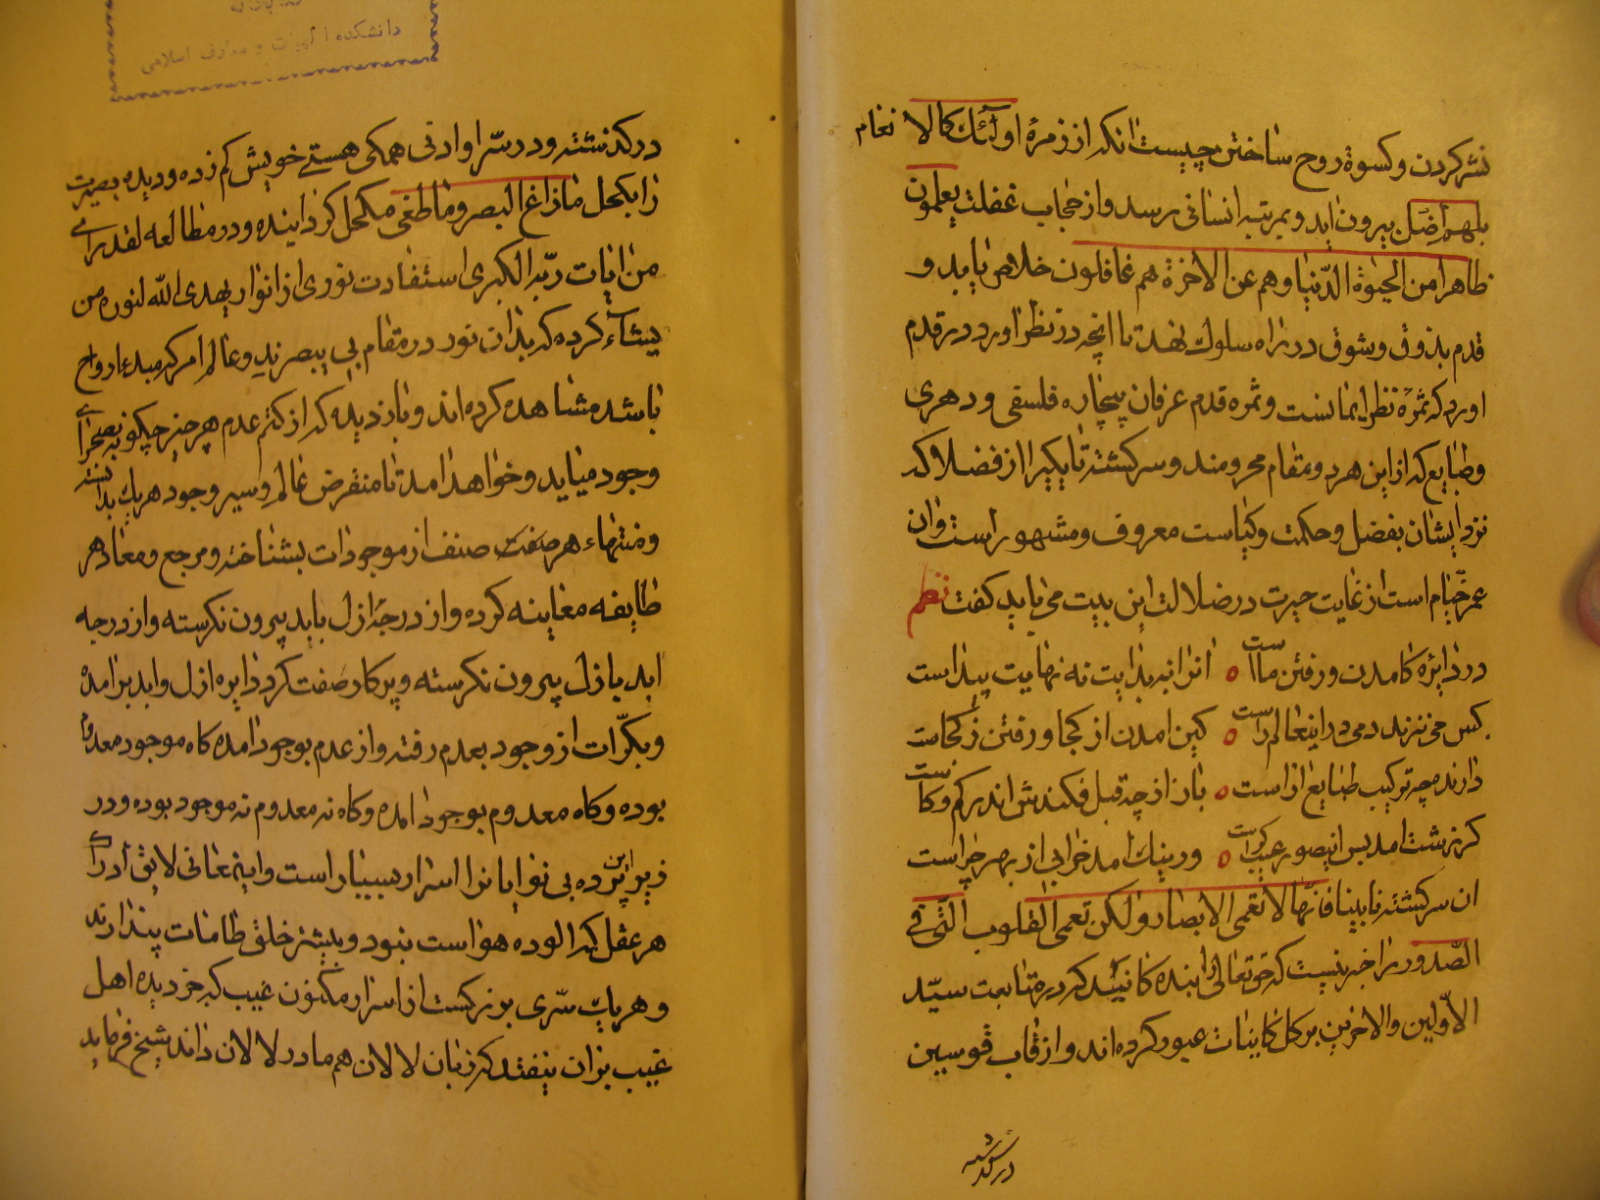 نشر کردن و کسوة روح ساختن چیست انکه از زمرهٔ اولئك کالانعام
بل هم اضل بیرون اید و بمرتبه انسانی رسد و از حجاب غفلت یعلمون
ظاهرا من الحیوة الدّنیا و هم عن الاخرة هم غافلون خلاص یابد و
قدم بذوق و شوق در راه سلوك نهد تا انچه در نظر اورد در قدم
اورد که ثمرهٔ نظر ایمانست و ثمره قدم عرفان بیچاره فلسفی و دهری
و طبایع که ازین هر دو مقام محرومند و سرکشته تا یکی را از فضلا که
نزد ایشان بفضل و حکمت و کیاست معروف و مشهور است وان
عمر خیّام است از غایت حیرت در ضلالت این بیت می باید کفت نظم
در دایره کامدن و رفتن ماست ه انرا نه بدایت نه نهایت پیداست
کس می نزند دمی در اینعالم راست ه کین امدن از کجا و رفتن ز کجاست
دارنده چه ترکیب طبایع اراست ه باز از چه قبل فکندش اندر کم و کاست
کر زشت امد پس اینصور عیب کراست ه ور نیك امد خرابی از بهر چراست
ان سرکشته نابینا فانّها لا تعمی الابصار ولکن تعمی القلوب الّتی فی
الصّدور را خبر نیست که حق تعالی را بنده کانیند که در متابعت سیّد
الاوّلین والاخرین بر کل کاینات عبور کرده اند و از قاب قوسین
در کذشته
در کذشته و در سّر او ادنی همکی هستی خویش کم زده و دیده بصیرت
را بکحل ما زاغ البصر و ما طغی مکحل کردانیده و در مطالعه لقد رای
من ایات ربّه الکبری استفادت نوری از انوار یهدی الله لنوره من
یشاء کرده که بدان نور در مقام بی یبصر ند و عالم امر که مبدء ارواح
باشد مشاهده کرده اند و باز دیده که از کتم عدم هر چیز چکونه بصحرای
وجود میاید و خواهد امد تا منقرض عالم و سیر وجود هریك بدانسته
و منتهاء هر صنف از موجودات بشناخته و مرجع و معاد هر
طایفه معاینه کرده و از درجهٔ ازل بابد بیرون نکرسته و از درجه
ابد بازل بیرون نکرسته و پرکار صفت کرد دایره ازل و ابد برامده
و بکرّات از وجود بعدم رفته و از عدم بوجود امده کاه موجود معدوم
بوده و کاه معدوم بوجود امده و کاه نه معدوم نه موجود بوده و در
زیر این پرده بی نوایانرا اسرار بسیار است و اینمعانی لایق ادرای
هر عقل که الوده هواست نبود و بیشتر خلق طامات پندارند
و هریك سّری بزرکست از اسرار مکنون غیب که جز دیده اهل
غیب بران نیفتد که زبان لالان هم مادر لالان داند شیخ فرماید
دانشکده الهیات و معارف اسلامی